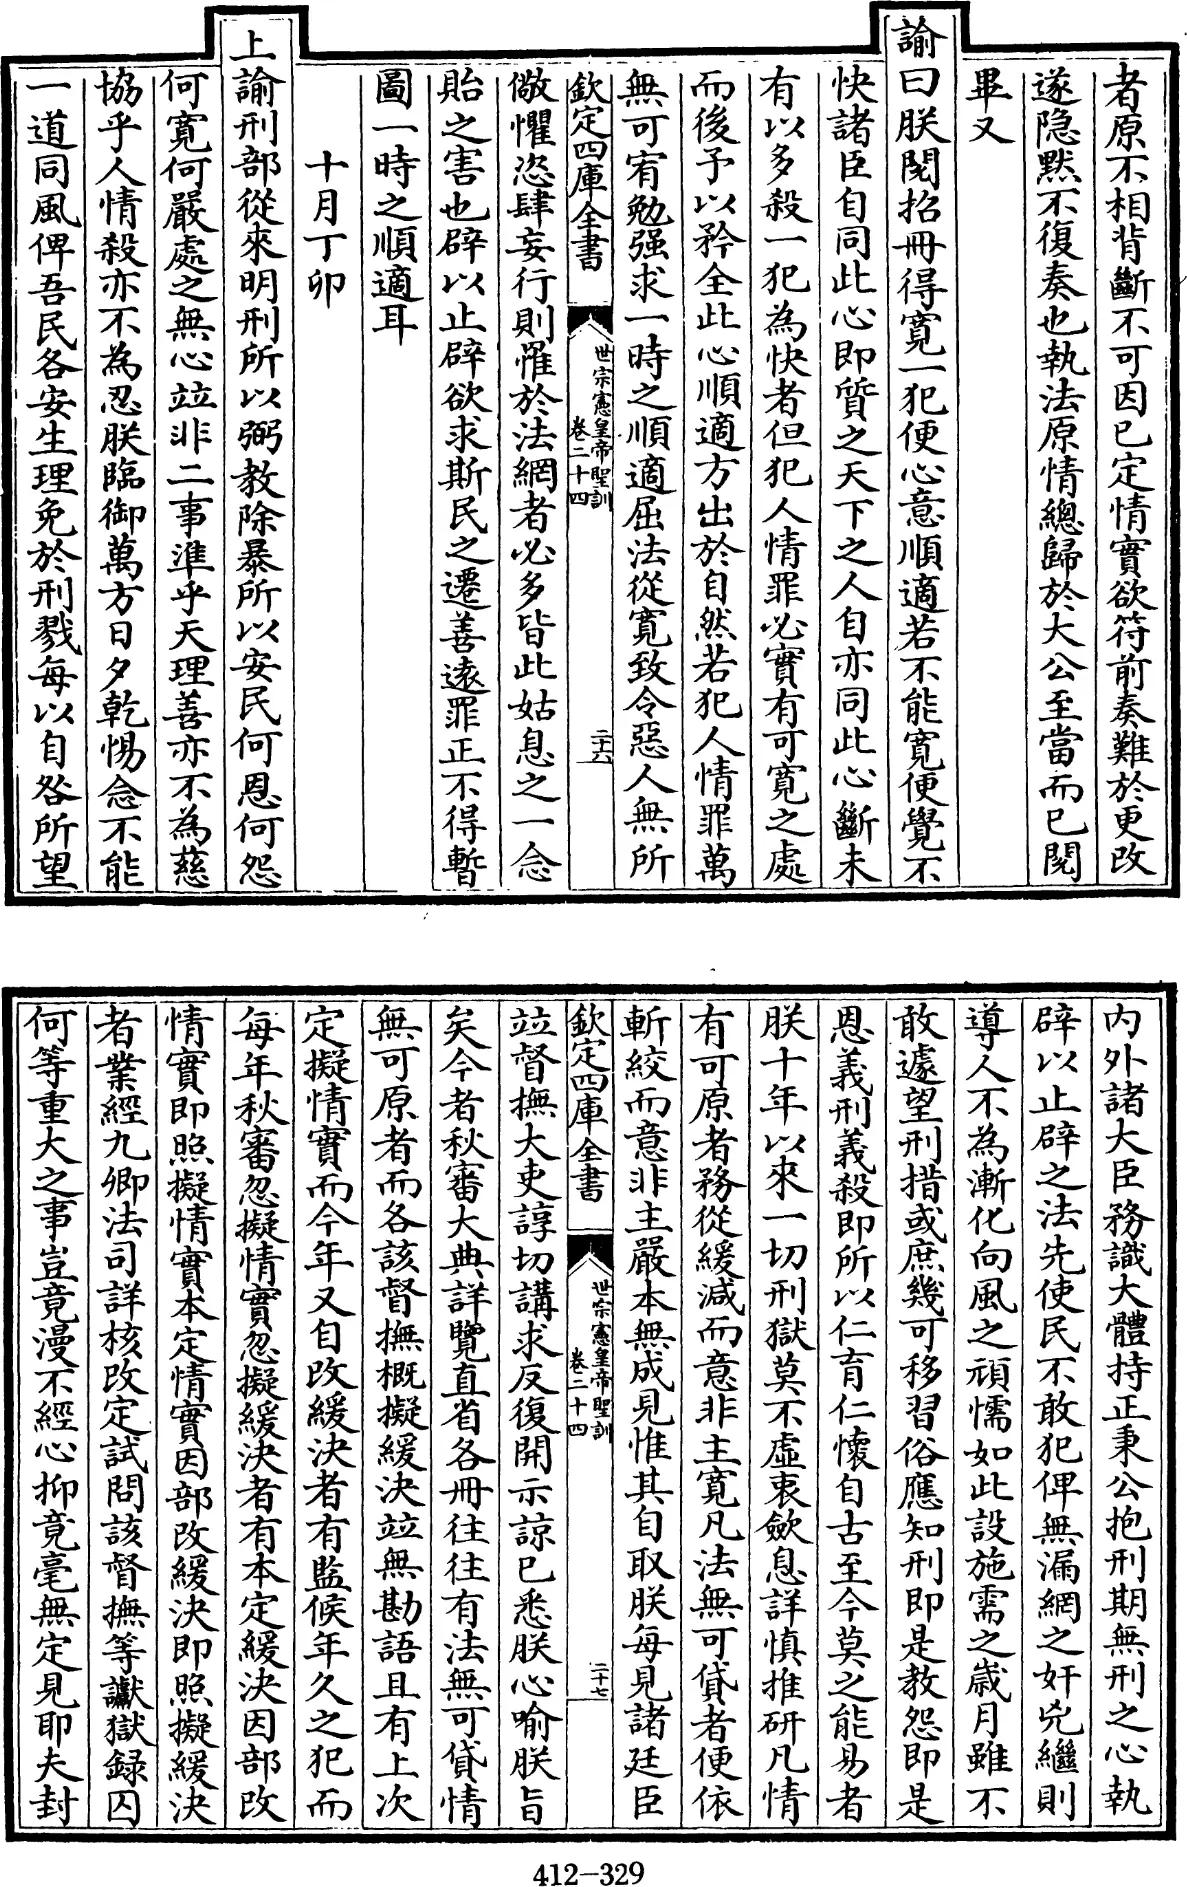 者原不相背斷不可因已定情實欲符前奏難於更改
遂隐黙不復奏也執法原情總歸於大公至當而已閱
畢又
諭曰朕閱招冊得寛一犯便心意順適若不能寛便覺不
快諸臣自同此心即質之天下之人自亦同此心斷未
有以多殺一犯為快者但犯人情罪必實有可寛之處
而後予以矜全此心順適方出於自然若犯人情罪萬
無可宥勉强求一時之順適屈法從寛致令惡人無所
欽定四庫全書
世宗憲皇帝聖訓
卷二十四
二十六
儆懼恣肆妄行則罹於法網者必多皆此姑息之一念
貽之害也辟以止辟欲求斯民之遷善逺罪正不得暫
圖一時之順適耳
十月丁卯
上諭刑部從來明刑所以弼教除暴所以安民何恩何怨
何寛何嚴處之無心竝非二事準乎天理善亦不為慈
協乎人情殺亦不為忍朕臨御萬方日夕乾惕念不能
一道同風俾吾民各安生理免於刑戮每以自咎所望
內外諸大臣務識大體持正秉公抱刑期無刑之心執
辟以止辟之法先使民不敢犯俾無漏網之奸兇繼則
導人不為漸化向風之頑懦如此設施需之歲月雖不
敢遽望刑措或庶幾可移習俗應知刑即是教怨即是
恩義刑義殺即所以仁育仁懷自古至今莫之能易者
朕十年以來一切刑獄莫不虛衷歛息詳慎推研凡情
有可原者務從緩減而意非主寛凡法無可貸者便依
斬絞而意非主嚴本無成見惟其自取朕每見諸廷臣
欽定四庫全書
世宗憲皇帝聖訓
卷二十四
二十七
竝督撫大吏諄切講求反復開示諒已悉朕心喻朕旨
矣今者秋審大典詳覽直省各冊往往有法無可貸情
無可原者而各該督撫概擬緩決竝無勘語且有上次
定擬情實而今年又自改緩決者有監候年久之犯而
每年秋審忽擬情實忽擬緩決者有本定緩決因部改
情實即照擬情實本定情實因部改緩決即照擬緩決
者業經九卿法司詳核改定試問該督撫等讞獄録囚
何等重大之事豈竟漫不經心抑竟毫無定見耶夫封
412-329